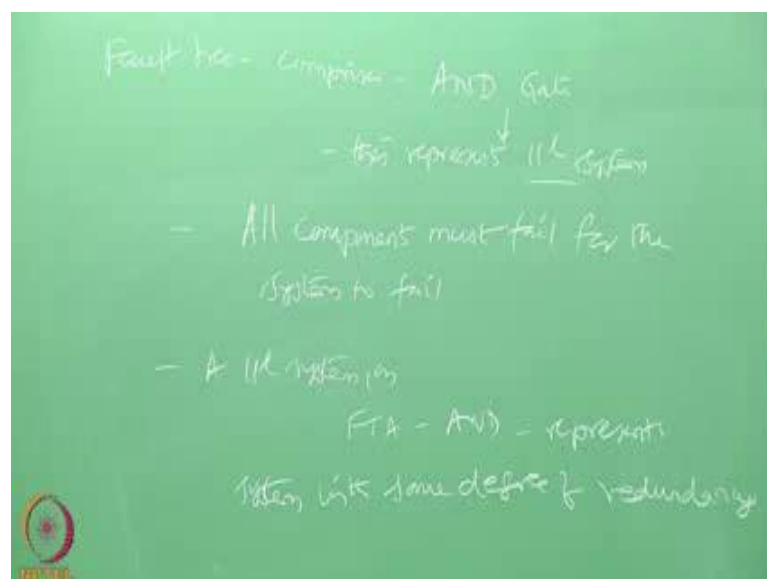 Fault tree - comprises - AND Gate
- this represents 11l system
- All component must fail for the
system to fail
- A 11l system, in
FTA - AND - represents
system with some degree of redundancy
NPTEL